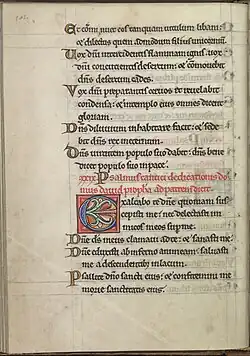 Et cōminuet eos tanquam uitulum libani:
et dilectus quemadmodum filius unicornium.
Vox dn̄i intercidentis flammam ignis: uox
dn̄i concutientis desertum: et cōmouebit
dn̄s desertum cades.
Vox dn̄i preparantis ceruos et reuelabit
condensa: et in templo eius omnes dicent
gloriam.
Dn̄s diluuium inhabitare facit: et sede
bit dn̄s rex in eternum.
Dn̄s uirtutem populo suo dabit: dn̄s bene
dicet populo suo in pace.
xxix Psalmus cantici dedicationis do
mus dauid propha ad patrem dicit.
Exaltabo te dn̄e quoniam sus
cepisti me: nec delectasti in
imicos meos sup me.
Dn̄e ds̄ meus clamaui ad te: et sanasti me.
Dn̄e eduxisti ab inferno animam: saluasti
me a descendentib; in lacum.
Psallite dn̄o sancti eius: et confitemini me
morie sanctitatis eius.